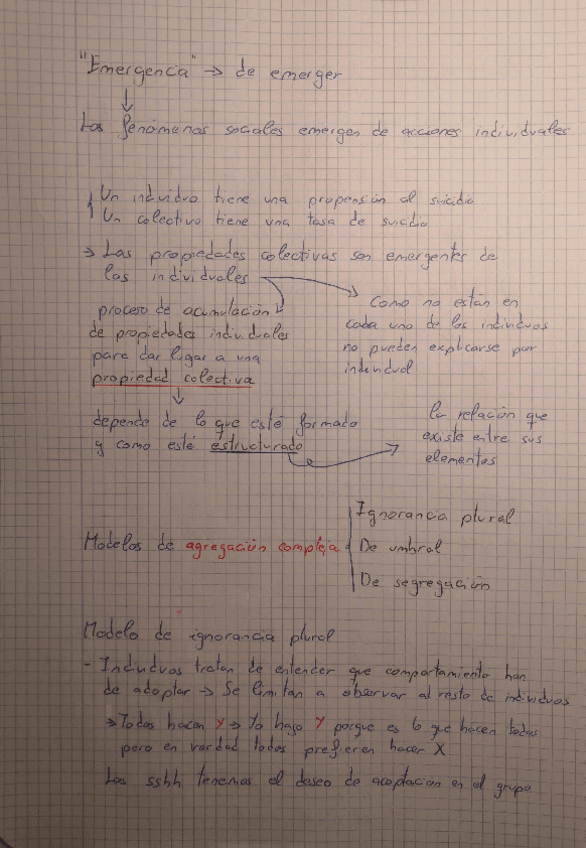 "Emergencia" → de emerger
Los fenómenos sociales emergen de acciones individuales
Un individuo tiene una propensión al suicidio
Un colectivo tiene una tasa de suicidio
→ Las propiedades colectivas son emergentes de
las individuales
proceso de acumulación
de propiedades individuales
para dar lugar a una
propiedad colectiva
Como no están en
cada uno de los individuos
no pueden explicarse por
individual
depende de lo que esté formado
y como esté estructurado
la relación que
existe entre sus
elementos
Modelos de agregación compleja
Ignorancia plural
De umbral
De segregación
Modelo de ignorancia plural
- Individuos tratan de entender que comportamiento han
de adoptar → Se limitan a observar al resto de individuos
→ Todos hacen Y → Yo hago Y porque es lo que hacen todos
pero en verdad todos prefieren hacer X
Los sshh tenemos el deseo de aceptación en el grupo